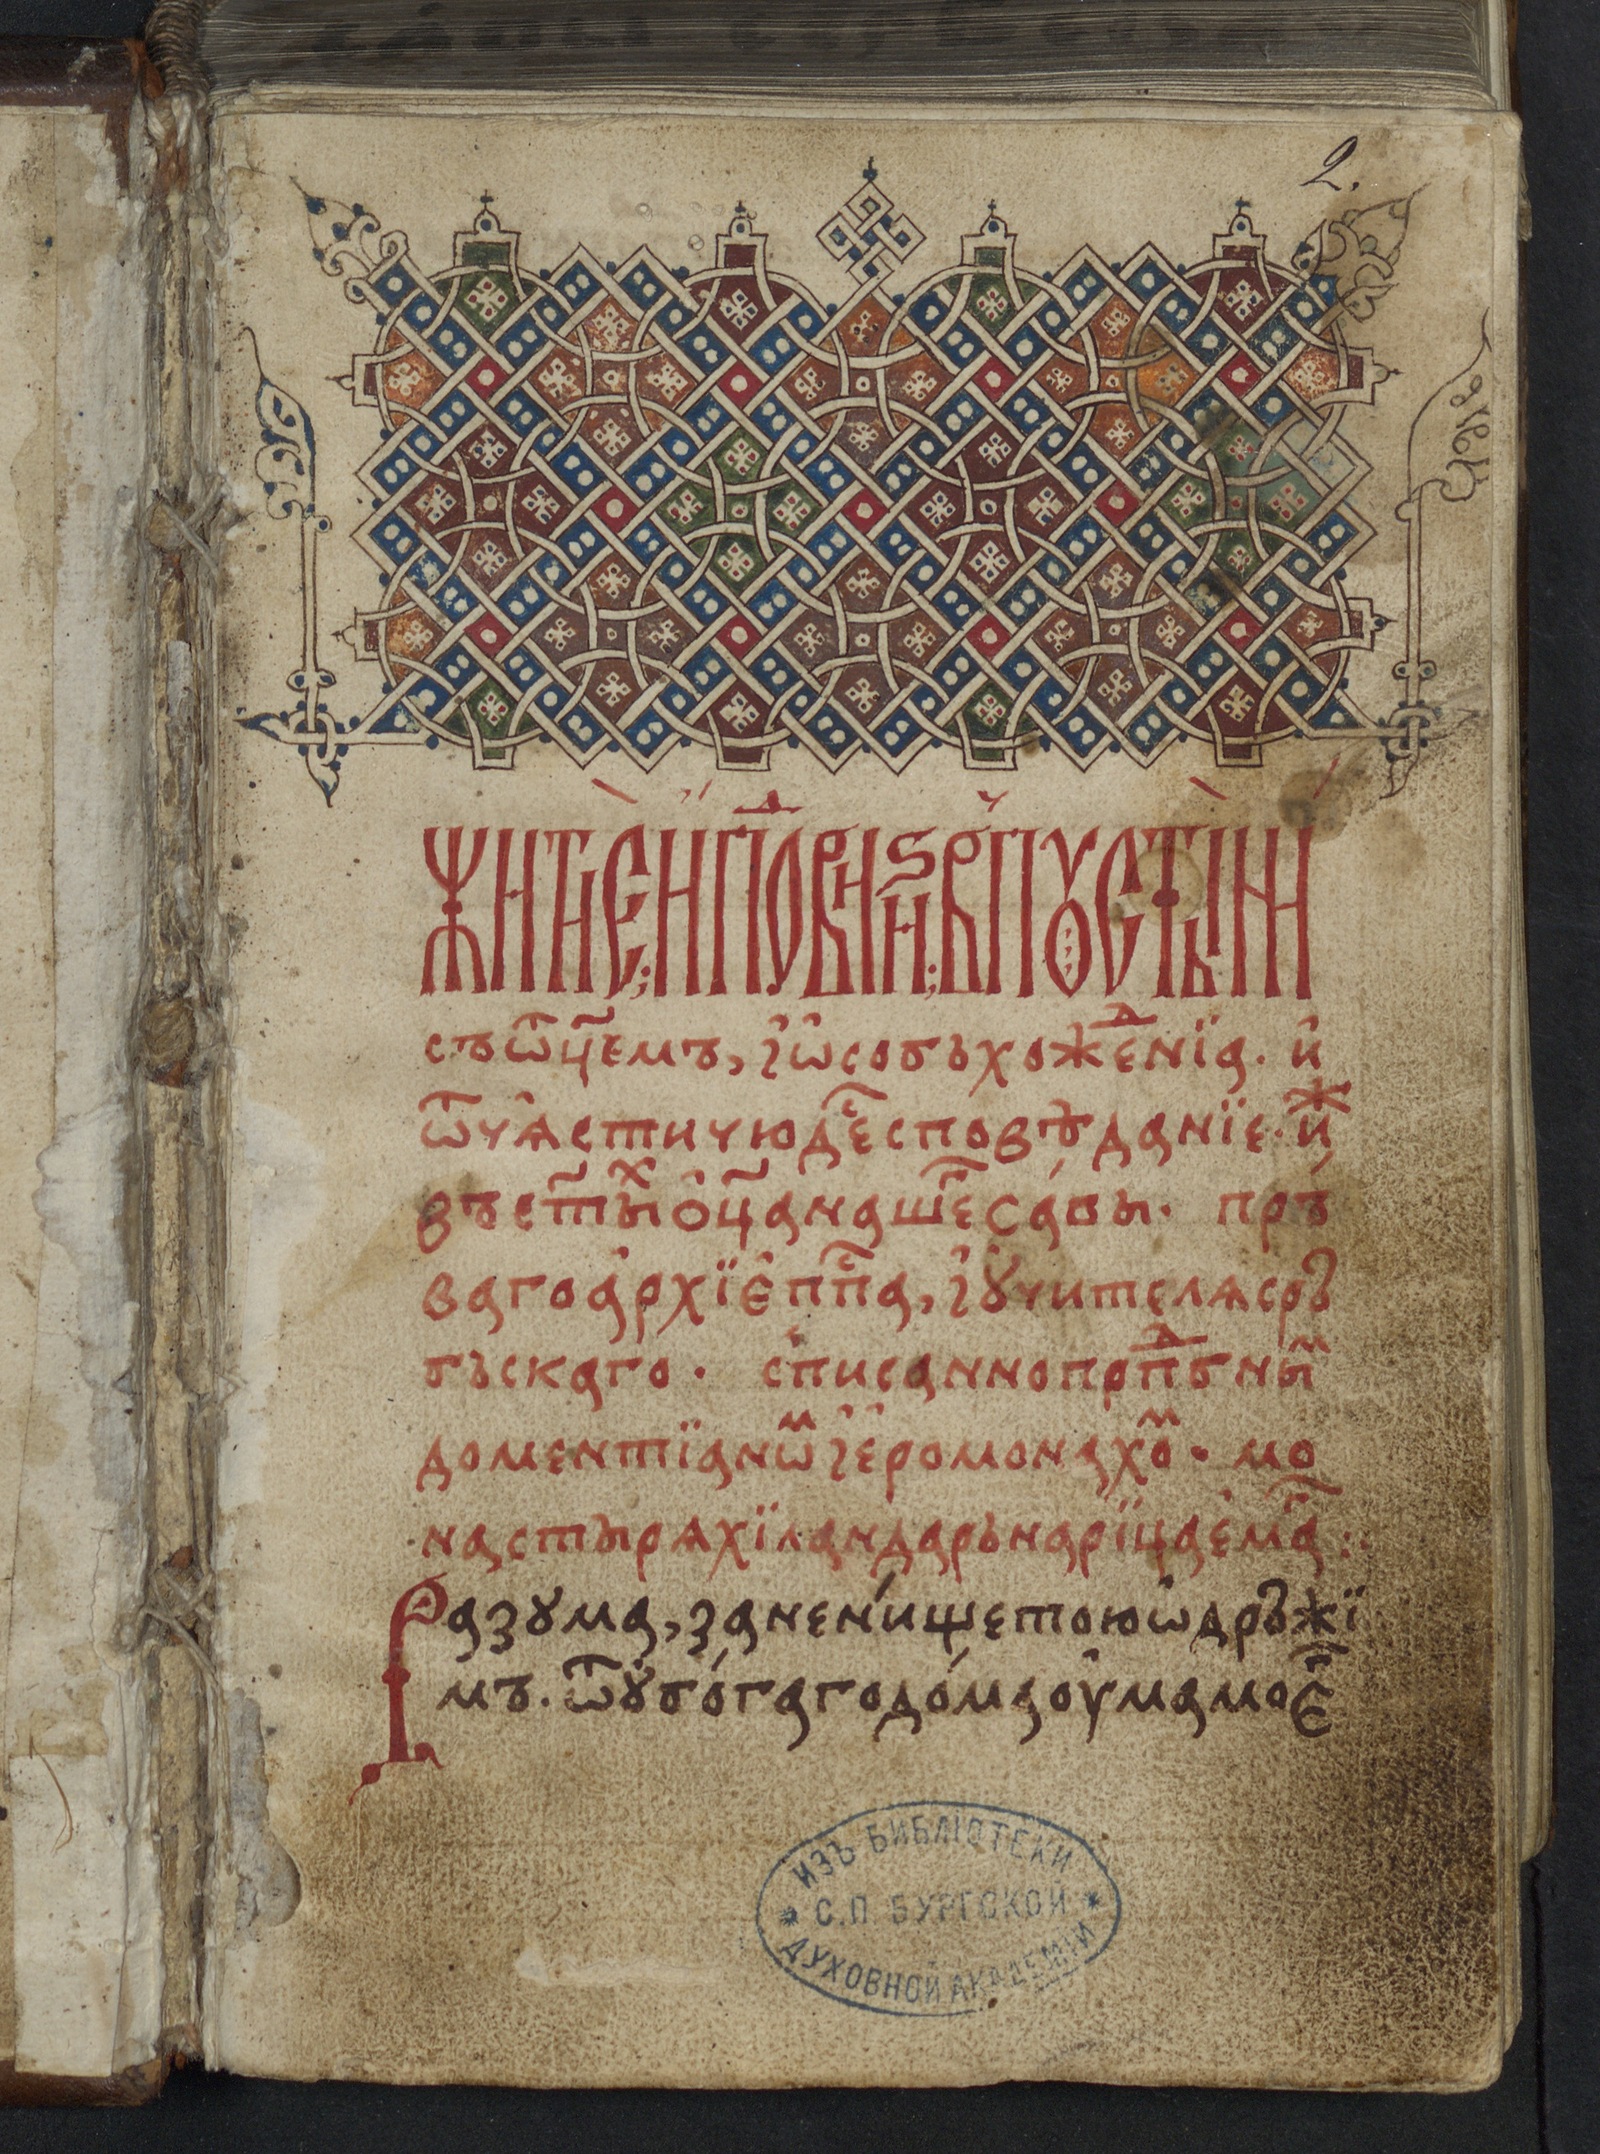 2.
житїе и подвиѕи, в пꙋстыни
съѿц҃емъ, і ѡсобъ хоженїа. и
ѿчѧсти чюде͒ сповѣданїе. иж
въ ст҃ых оц҃а наше͒ савы. пръ
ваго архїеп҃па, і ꙋчителѧ сръ
бъскаго. списанно прп҃дбным
доментїаном іеромонахом. мо
настырѧ хїландарь нарїцаема͒ :.
Разꙋма, зане нищетою ѡдръжї
мъ. ѿ ꙋбогаго дома оума мое͒
ИЗЪ БИБЛІОТЕКИ
С.П. БУРГСКОЙ
ДУХОВНОЙ АКАДЕМІИ